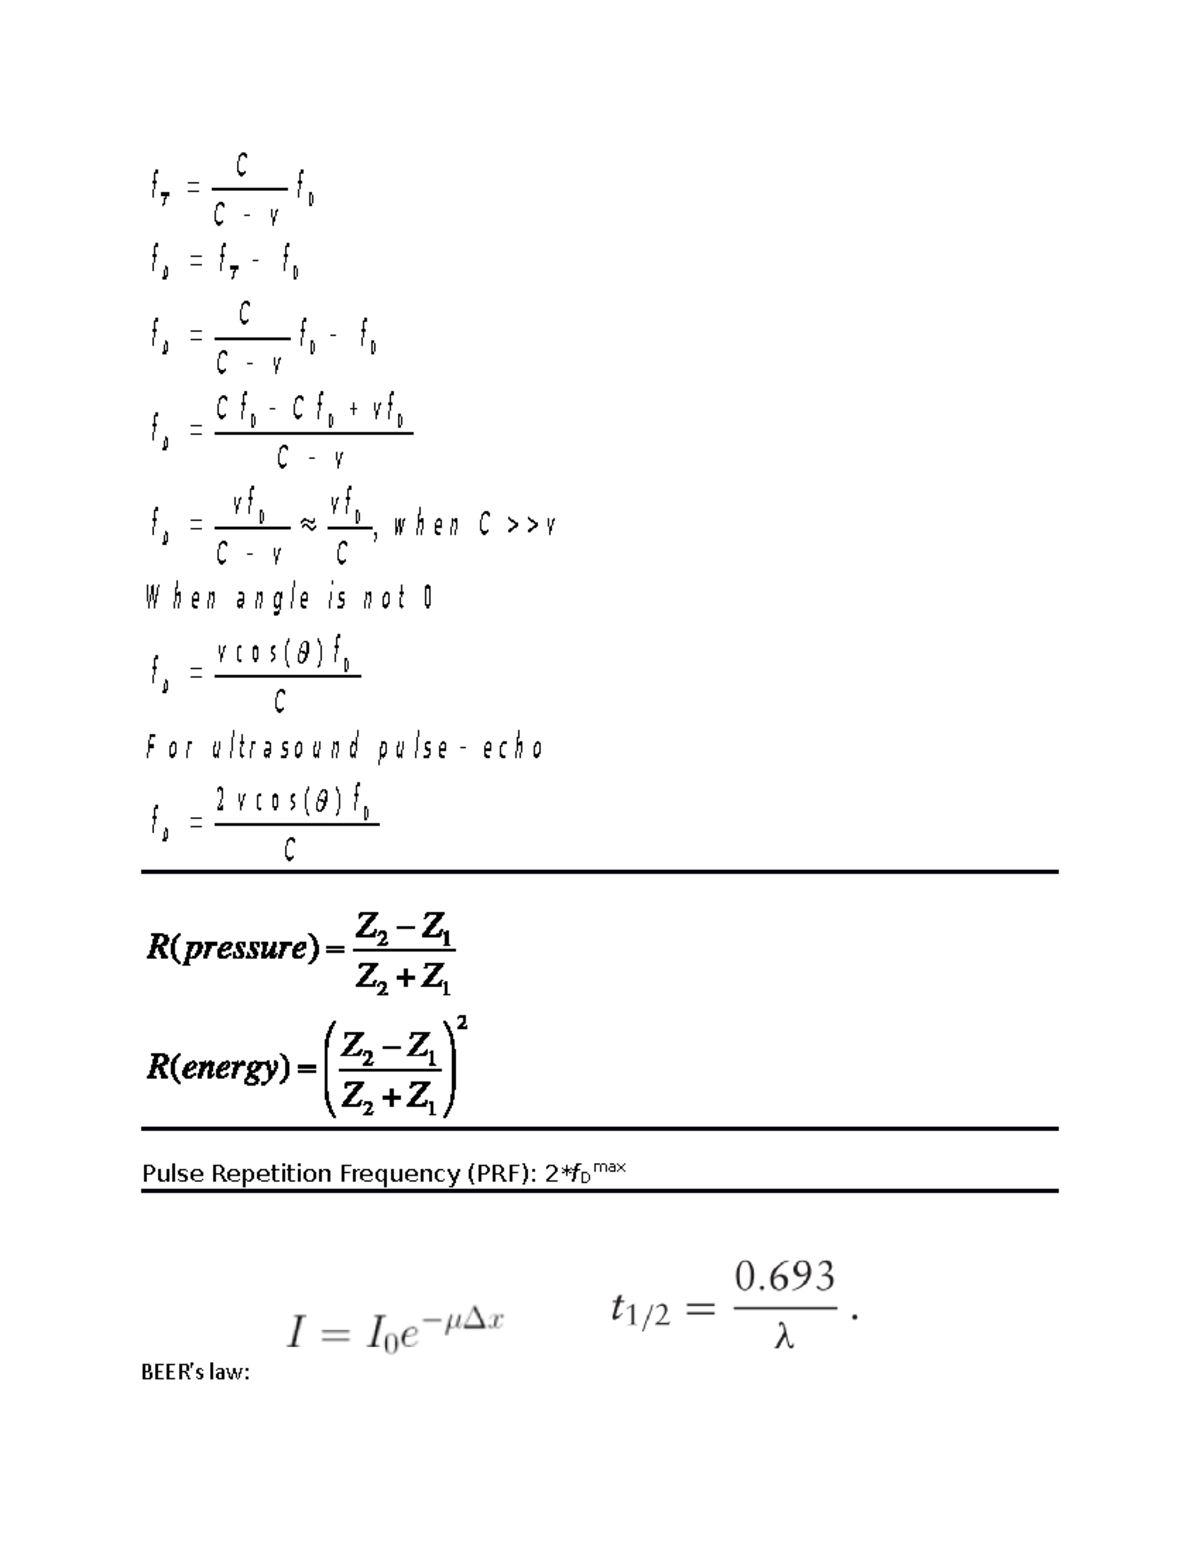 f_T = C / (C - v) f_0
f_D = f_T - f_0
f_D = C / (C - v) f_0 - f_0
f_D = (C f_0 - C f_0 + v f_0) / (C - v)
f_D = v f_0 / (C - v) ≈ v f_0 / C, when C >> v
When angle is not 0
f_D = v cos(θ) f_0 / C
For ultrasound pulse - echo
f_D = 2 v cos(θ) f_0 / C
R(pressure) = (Z₂ − Z₁) / (Z₂ + Z₁)
R(energy) = ((Z₂ − Z₁) / (Z₂ + Z₁))²
Pulse Repetition Frequency (PRF): 2*f_D^max
I = I₀e^(−μΔx)
t_1/2 = 0.693 / λ .
BEER's law: